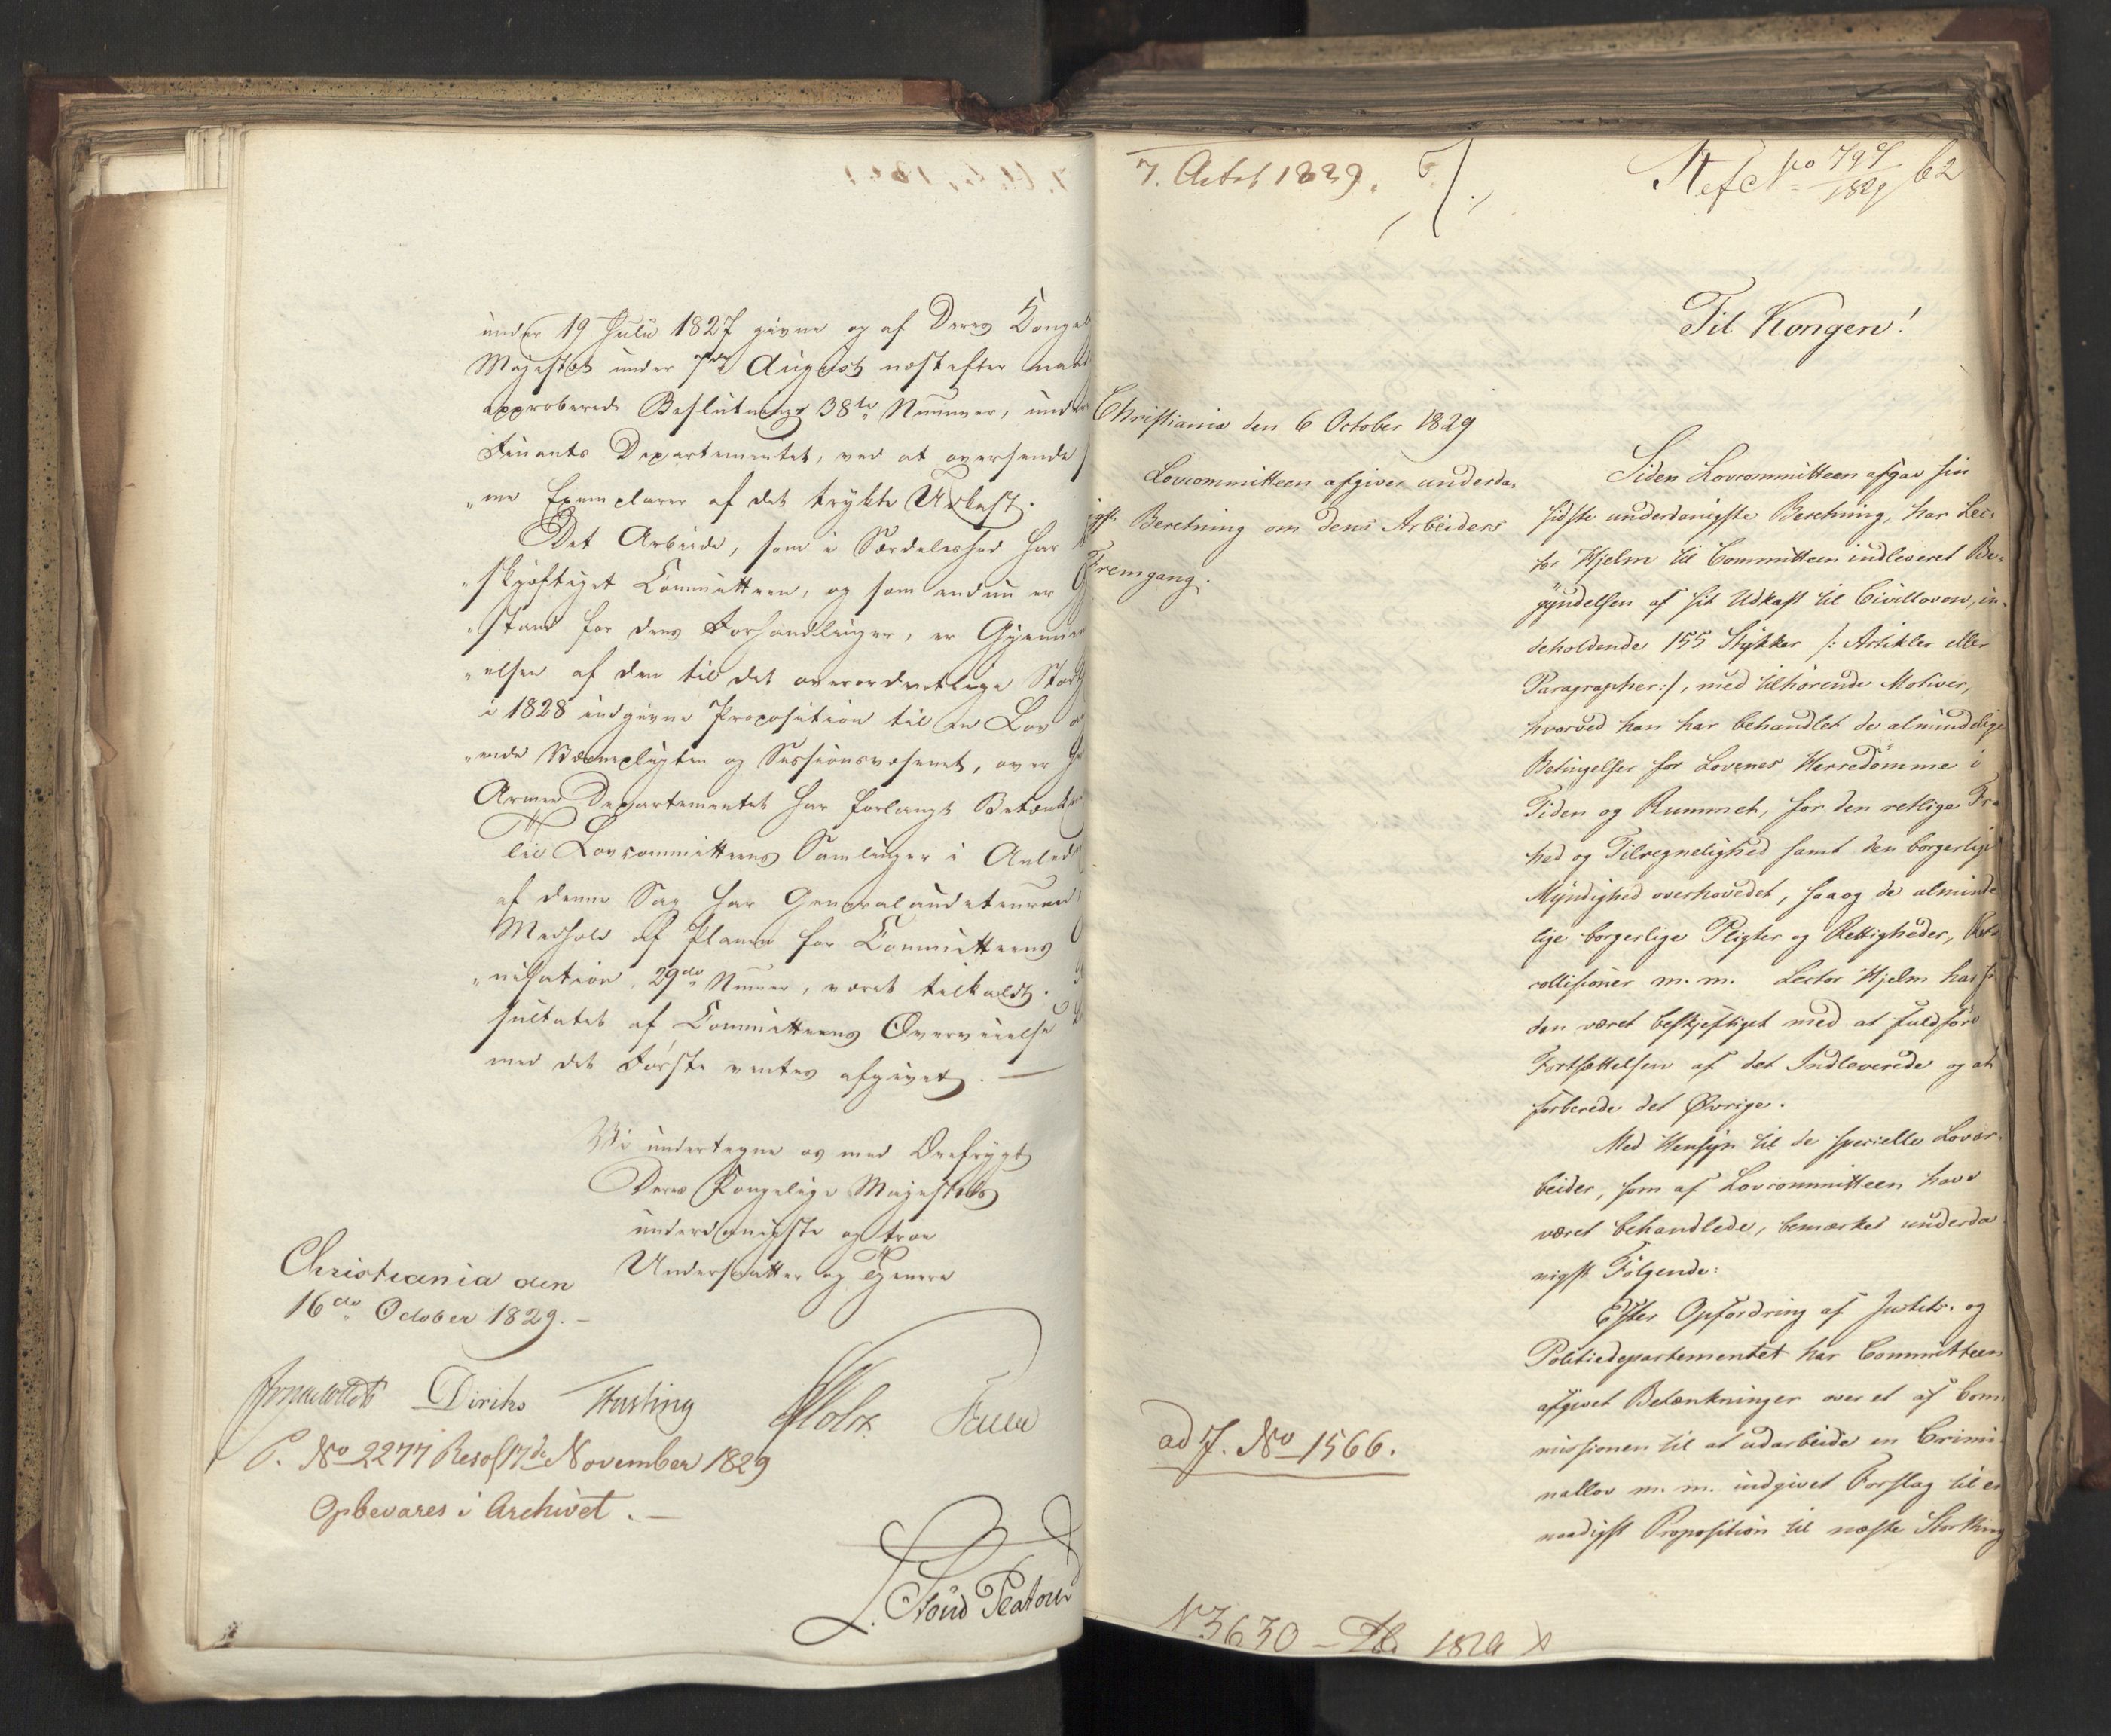 under 19 Julii 1827 givne og af Deres Kongel
Majestæt under 7de August næstefter naad
approberede Beslutnings 38te Nummer, under
Finants Departementet, ved at oversende
„me Exemplarer af det trykte Udkast.
Det Arbeide, som i Særdeleshed har
„skjæftiget Committeen, og som endnu er
„stand for dens Forhandlinger, er Gjennem
„elsen af den til det overordentlige Stort
i 1828 indgivne Proposition til en Lov
„ende Værnepligten og Sessionsvæsenet, over
Armee Departementet har forlangt Betænkn
Til Lovcommitteens Samlinger i Anled
af denne Sag har Generalauditeuren,
Medhold af Planen for Committeens
„nisation, 29de Numer, været tilkaldt.
sultatet af Committeens Overveielse
med det Første ventes afgivet. —
Vi undertegne os med Ærefrygt
Deres Kongelige Majestæts
underdanigste og troe
Undersaatter og Tjenere
Christiania den
16de October 1829. –
Diriks Hasting Falsen
P. No 2277 Resol 17de November 1829
Opbevares i Archivet. —
L. Stoud Platou
7. Octob 1829.
Ref No 797/1829 62
Til Kongen!
Christiania den 6 October 1829
Lovcommitteen afgiver underda-
nigst Beretning om dens Arbeiders
Fremgang.
Siden Lovcommitteen afgav sin
sidste underdanigste Beretning, har Lec-
tor Hjelm til Committeen indleveret Be-
gyndelsen af sit Udkast til Civilloven, in-
deholdende 155 Stykker /: Artikler eller
Paragrapher:/, med tilhørende Motiver,
hvorved han har behandlet de almindelige
Betingelser for Lovenes Herredømme i
Tiden og Rummet, for den retlige Fri-
hed og Tilregnelighed samt den borgerlige
Myndighed overhovedet, saaog de alminde
lige borgerlige Pligter og Rettigheder, Rets-
collisioner m. m. Lector Hjelm har si
den været beskjeftiget med at fuldføre
Fortsættelsen af det Indleverede og at
forberede det Øvrige.
Med Hensyn til de specielle Lovar-
beider, som af Lovcommitteen have
været behandlede, bemærkes underda
nigst Følgende:
Efter Opfordring af Justits- og
Politiedepartementet har Committeen
afgivet Betænkninger over et af Com-
missionen til at udarbeide en Crimi-
nallov m. m. indgivet Forslag til en
naadigst Proposition til næste Storthing
ad J. No 1566.
N 3630 – 1829